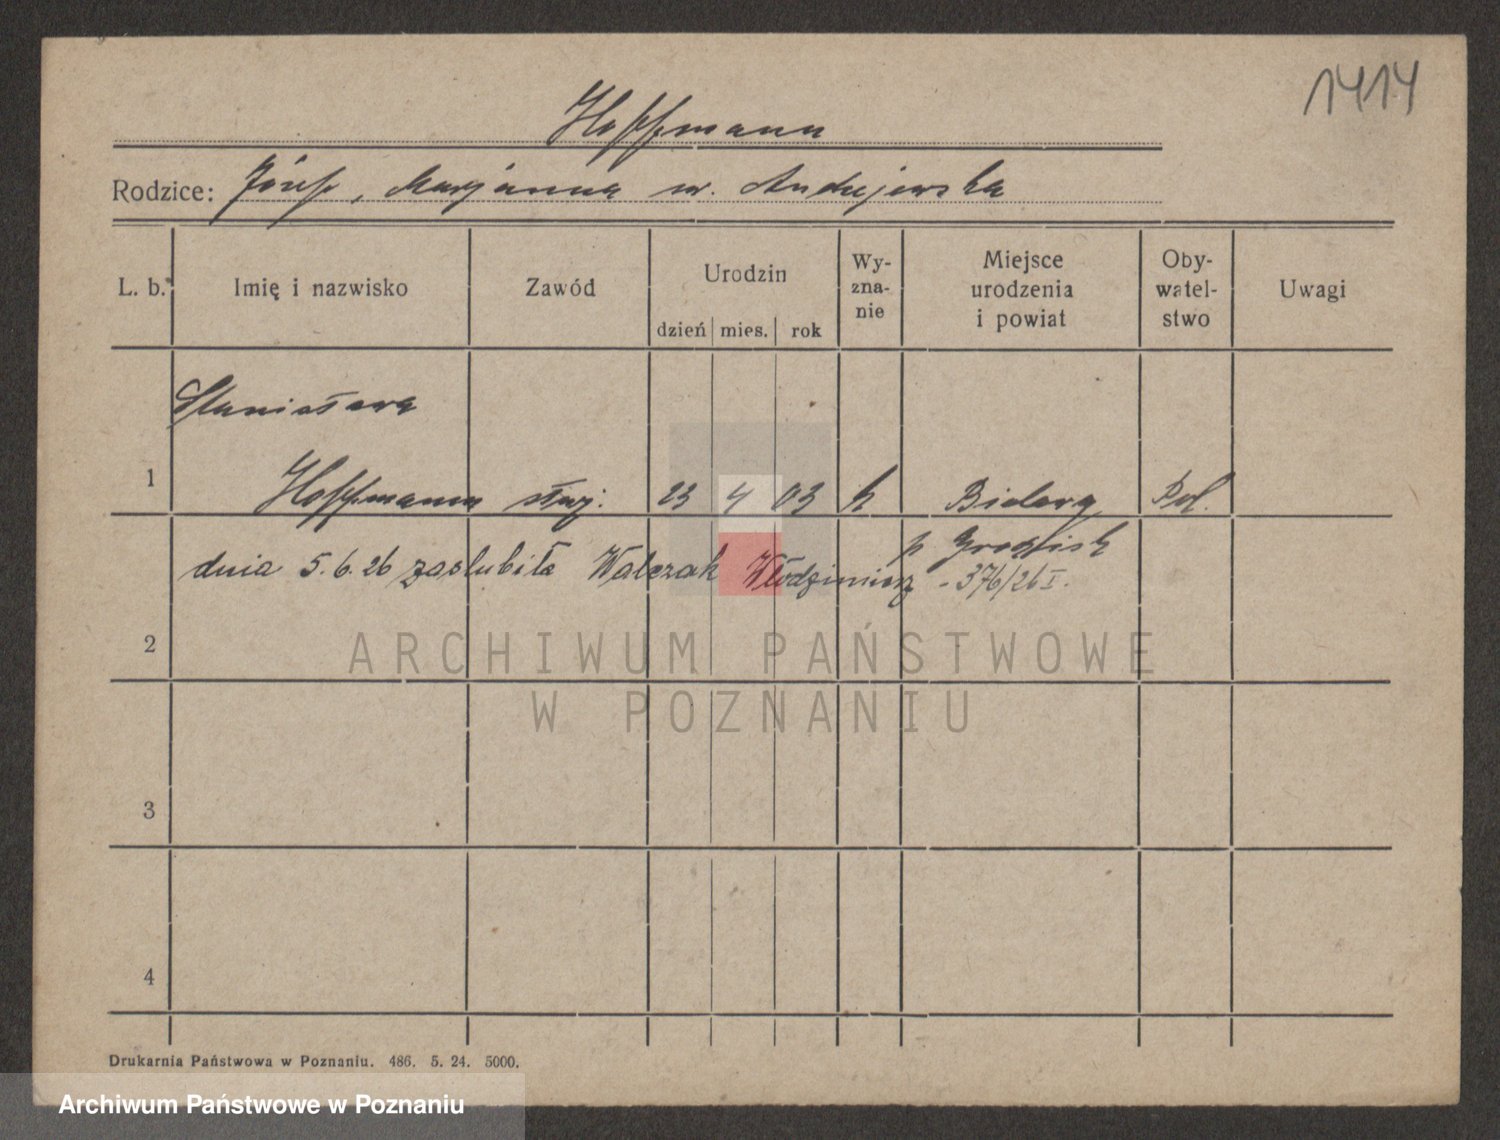 1414
Hoffmann
Rodzice: Józef, Marjanna ur. Andrzejewska
L. b. Imię i nazwisko Zawód Urodzin dzień mies. rok Wy-zna-nie Miejsce urodzenia i powiat Oby-watel-stwo Uwagi
Stanisława
1 Hoffmann służ. 23 4 03 k Pol.
p Grodzisk
dnia 5.6.26 zaslubiła Walczak Włodzimierz - 376/26 I.
2
ARCHIWUM PAŃSTWOWE
W POZNANIU
3
4
Drukarnia Państwowa w Poznaniu. 486. 5. 24. 5000.
Archiwum Państwowe w Poznaniu